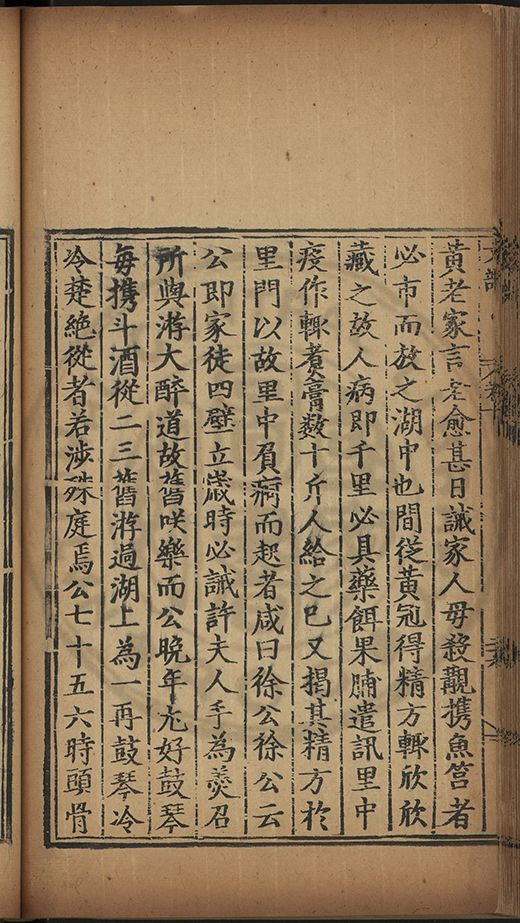 黃老家言老愈甚日誡家人毋殺觀攜魚笱者
必市而放之湖中也間從黃冠得精方輒欣欣
藏之故人病即千里必具藥餌果脯遣訊里中
疫作輒煑膏數十斤人給之已又揭其精方於
里門以故里中負痾而起者咸曰徐公徐公云
公即家徒四壁立歲時必誡許夫人手為羮召
所與游大醉道故舊咲樂而公晚年尤好鼓琴
每攜斗酒從二三舊游過湖上為一再鼓琴冷
冷楚絕從者若涉殊庭焉公七十五六時頭骨